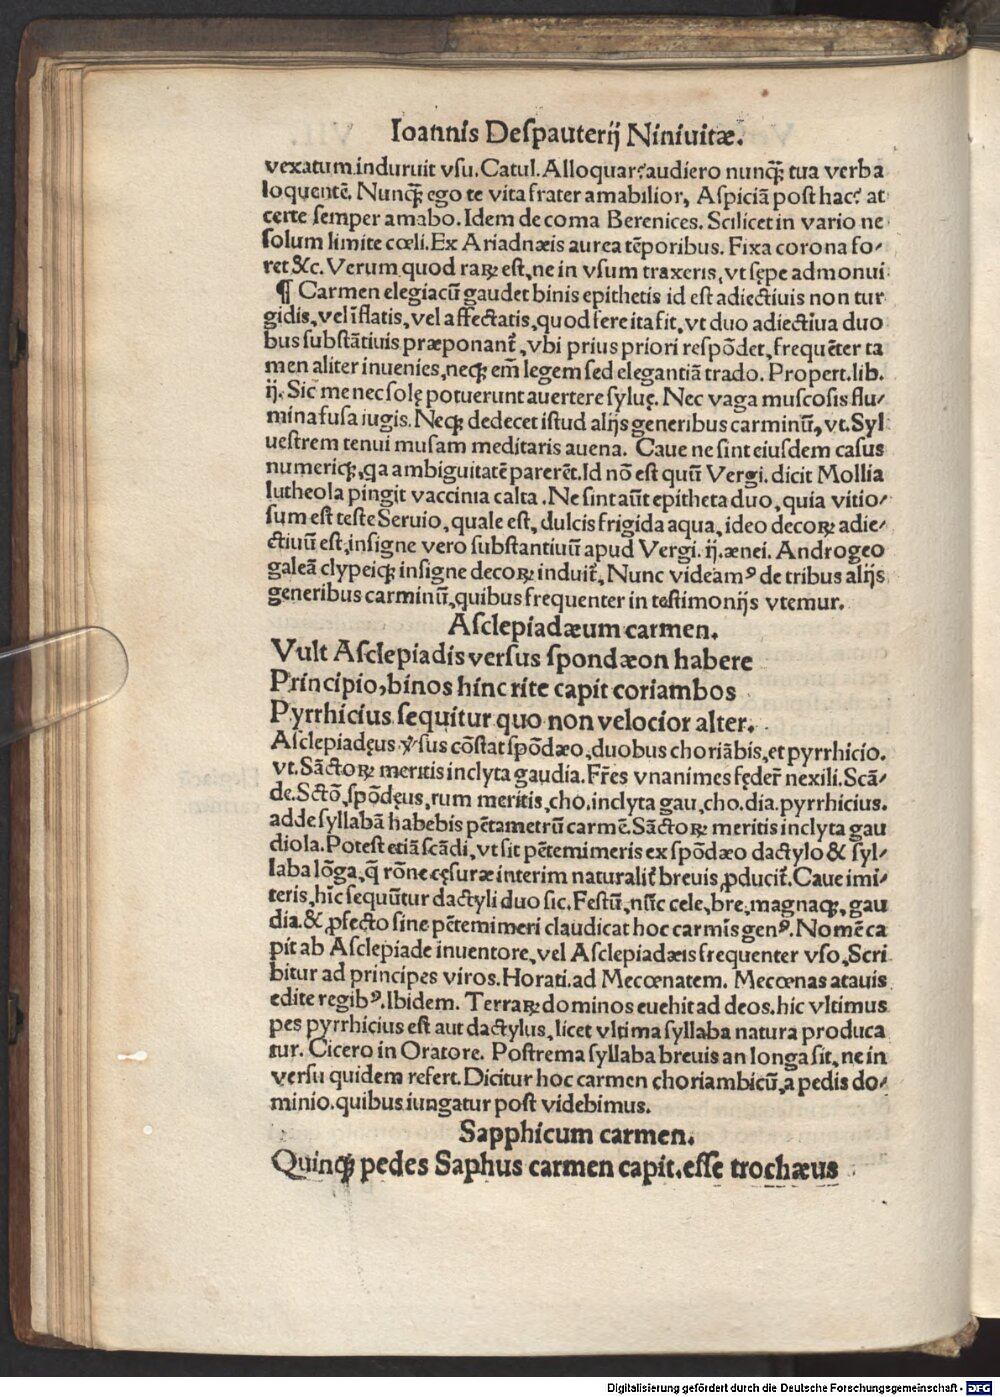 Ioannis Deſpauterij Niniuitæ.
vexatum induruit vſu. Catul. Alloquar? audiero nunqꝫ tua verba
loquentē. Nunqꝫ ego te vita frater amabilior, Aſpiciā poſt hac? at
certe ſemper amabo. Idem de coma Berenices. Scilicet in vario ne
ſolum limite cœli. Ex Ariadnæis aurea tēporibus. Fixa corona fo⸗
ret &c. Verum quod raꝝ eſt, ne in vſum traxeris, vt ſępe admonui
¶ Carmen elegiacū gaudet binis epithetis id eſt adiectiuis non tur
gidis, vel īflatis, vel affectatis, quod fere ita fit, vt duo adiectiua duo
bus ſubſtātiuis præponant᷑, vbi prius priori reſpōdet, frequēter ta
men aliter inuenies, neqꝫ em̄ legem ſed elegantiā trado. Propert. lib.
ij. Sic me nec ſolę potuerunt auertere ſyluę. Nec vaga muſcoſis flu⸗
mina fuſa iugis. Neqꝫ dedecet iſtud alijs generibus carminū, vt. Syl
ueſtrem tenui muſam meditaris auena. Caue ne ſint eiuſdem caſus
numeriqꝫ, qa ambiguitatē parerēt. Id nō eſt quū Vergi. dicit Mollia
lutheola pingit vaccinia calta. Ne ſint aūt epitheta duo, quia vitio⸗
ſum eſt teſte Seruio, quale eſt, dulcis frigida aqua, ideo decoꝝ adie⸗
ctiuū eſt, inſigne vero ſubſtantiuū apud Vergi. ij. ænei. Androgeo
galeā clypeiqꝫ inſigne decoꝝ induit᷑, Nunc videamꝰ de tribus alijs
generibus carminū, quibus frequenter in teſtimonijs vtemur.
Aſclepiadæum carmen.
Vult Aſclepiadis verſus ſpondæon habere
Principio, binos hinc rite capit coriambos
Pyrrhicius ſequitur quo non velocior alter.
Aſclepiadęus ꝟſus cōſtat ſpōdæo, duobus choriābis, et pyrrhicio.
vt. Sāctoꝝ meritis inclyta gaudia. Fr̄es vnanimes fęder̄ nexili. Scā⸗
de. Sctō, ſpōdęus, rum meritis, cho. inclyta gau, cho. dia. pyrrhicius.
adde ſyllabā habebis pētametrū carmē. Sāctoꝝ meritis inclyta gau
diola. Poteſt etiā ſcādi, vt ſit pētemimeris ex ſpōdæo dactylo & ſyl⸗
laba lōga, q̄ rōne cęſuræ interim naturalit᷑ breuis, ꝓducit᷑. Caue imi⸗
teris, hīc ſequūtur dactyli duo ſic. Feſtū, nūc cele, bre, magnaqꝫ, gau
dia. & ꝓfecto ſine pētemimeri claudicat hoc carmīs genꝰ. Nomē ca
pit ab Aſclepiade inuentore, vel Aſclepiadæis frequenter vſo, Scri
bitur ad principes viros. Horati. ad Mecœnatem. Mecœnas atauis
edite regibꝰ. Ibidem. Terraꝝ dominos euehit ad deos. hic vltimus
pes pyrrhicius eſt aut dactylus, licet vltima ſyllaba natura produca
tur. Cicero in Oratore. Poſtrema ſyllaba breuis an longa ſit, ne in
verſu quidem refert. Dicitur hoc carmen choriambicū, a pedis do⸗
minio. quibus iungatur poſt videbimus.
Sapphicum carmen.
Quinqꝫ pedes Saphus carmen capit. eſſe trochæus
Digitalisierung gefördert durch die Deutsche Forschungsgemeinschaft - DFG